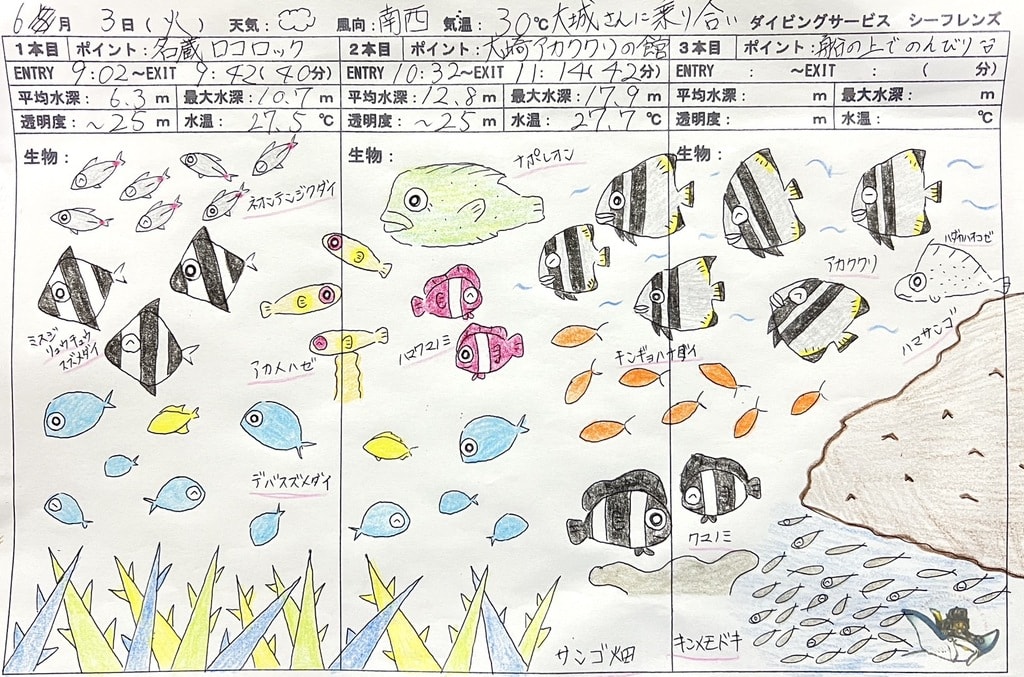 6月 3日(火) 天気: 風向:南西 気温:30℃ 大城さんに乗り合い ダイビングサービス シーフレンズ
1本目 ポイント:名蔵ロコロック 2本目 ポイント:大崎アカククリの館 3本目 ポイント:船の上でのんびり
ENTRY 9:02~EXIT 9:42(40分) ENTRY 10:32~EXIT 11:14(42分) ENTRY : ~EXIT : ( 分)
平均水深: 6.3m 最大水深:10.7m 平均水深:12.8m 最大水深:17.9m 平均水深: m 最大水深: m
透明度:~25m 水温: 27.5℃ 透明度:~25m 水温: 27.7℃ 透明度: m 水温: ℃
生物: 生物: 生物:
ナポレオン
ネオンテンジクダイ
ハダカハオコゼ
アカククリ
ミスジ
リュウキュウ
スズメダイ
アカメハゼ
ハマクマノミ
キンギョハナダイ
ハマサンゴ
デバスズメダイ
クマノミ
サンゴ畑
キンメモドキ